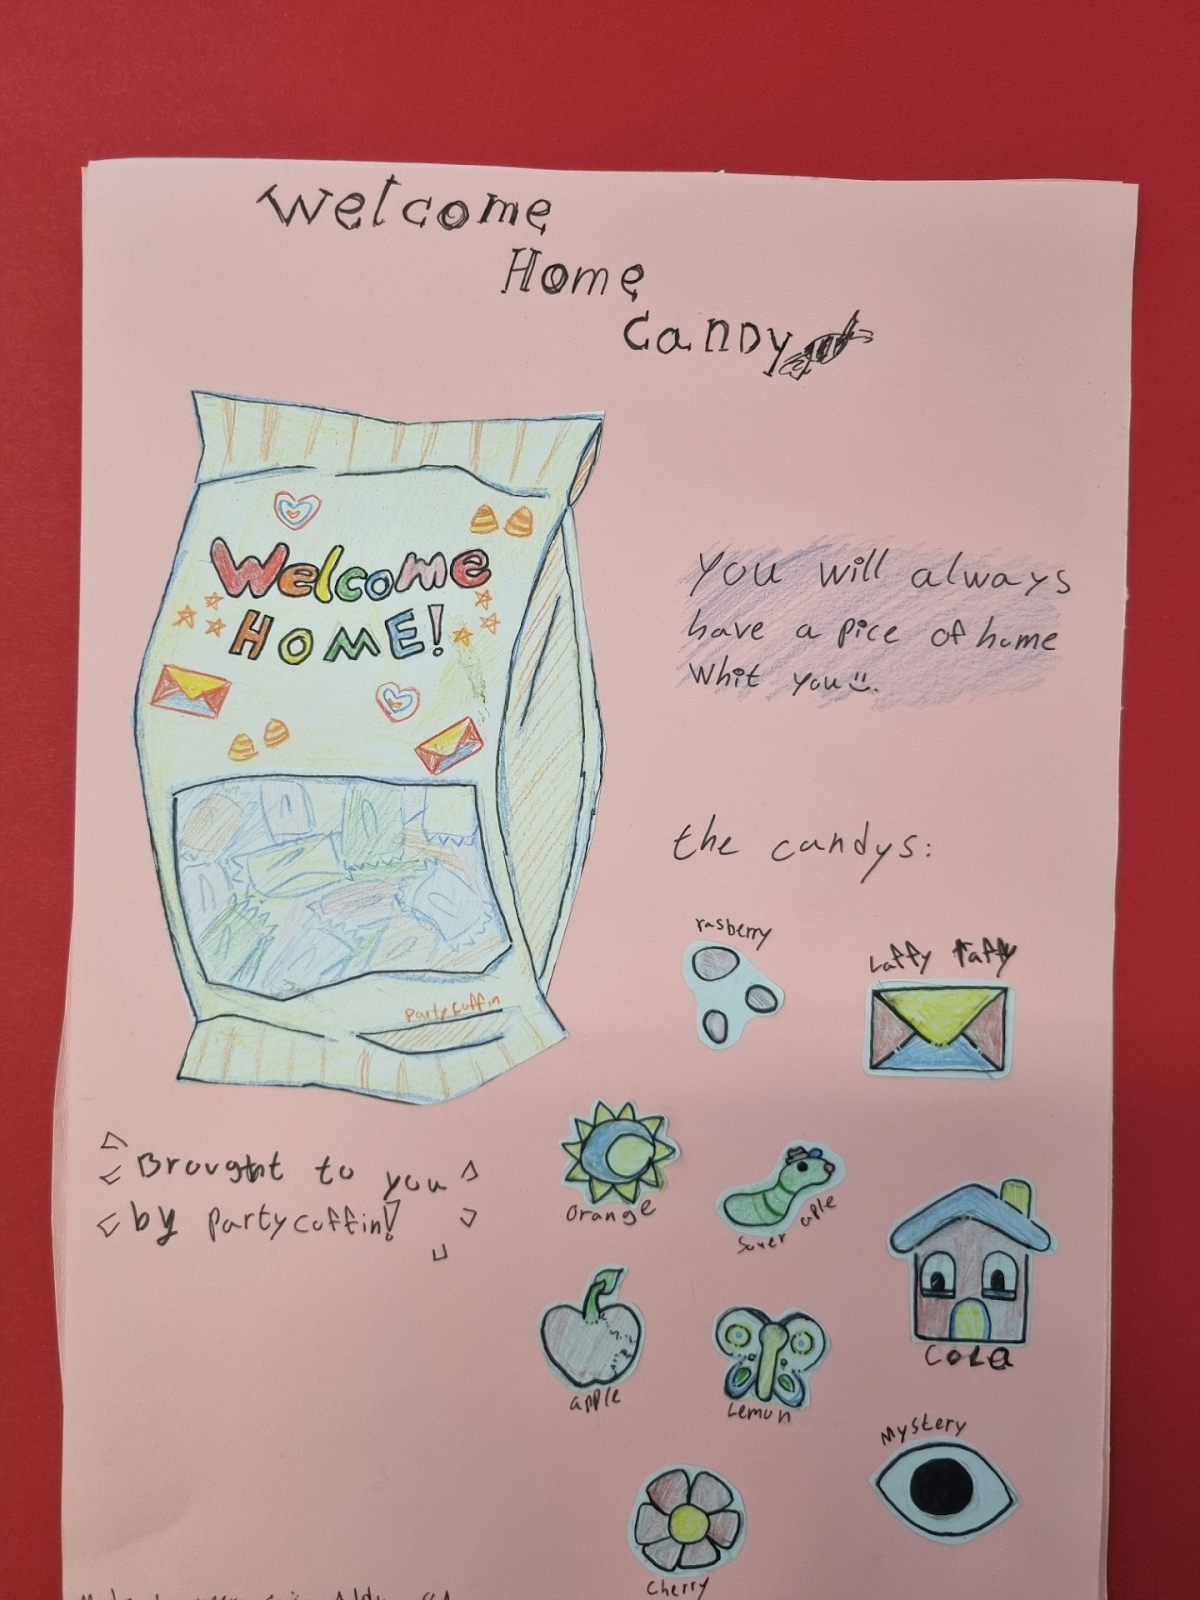 Welcome
Home
Candy
Welcome
HOME!
partycoffin
You will always
have a pice of home
whit you
the candys:
rasberry
Laffy taffy
Orange
Souer aple
Cola
apple
Lemon
Mystery
Cherry
Brought to you
by partycoffin!